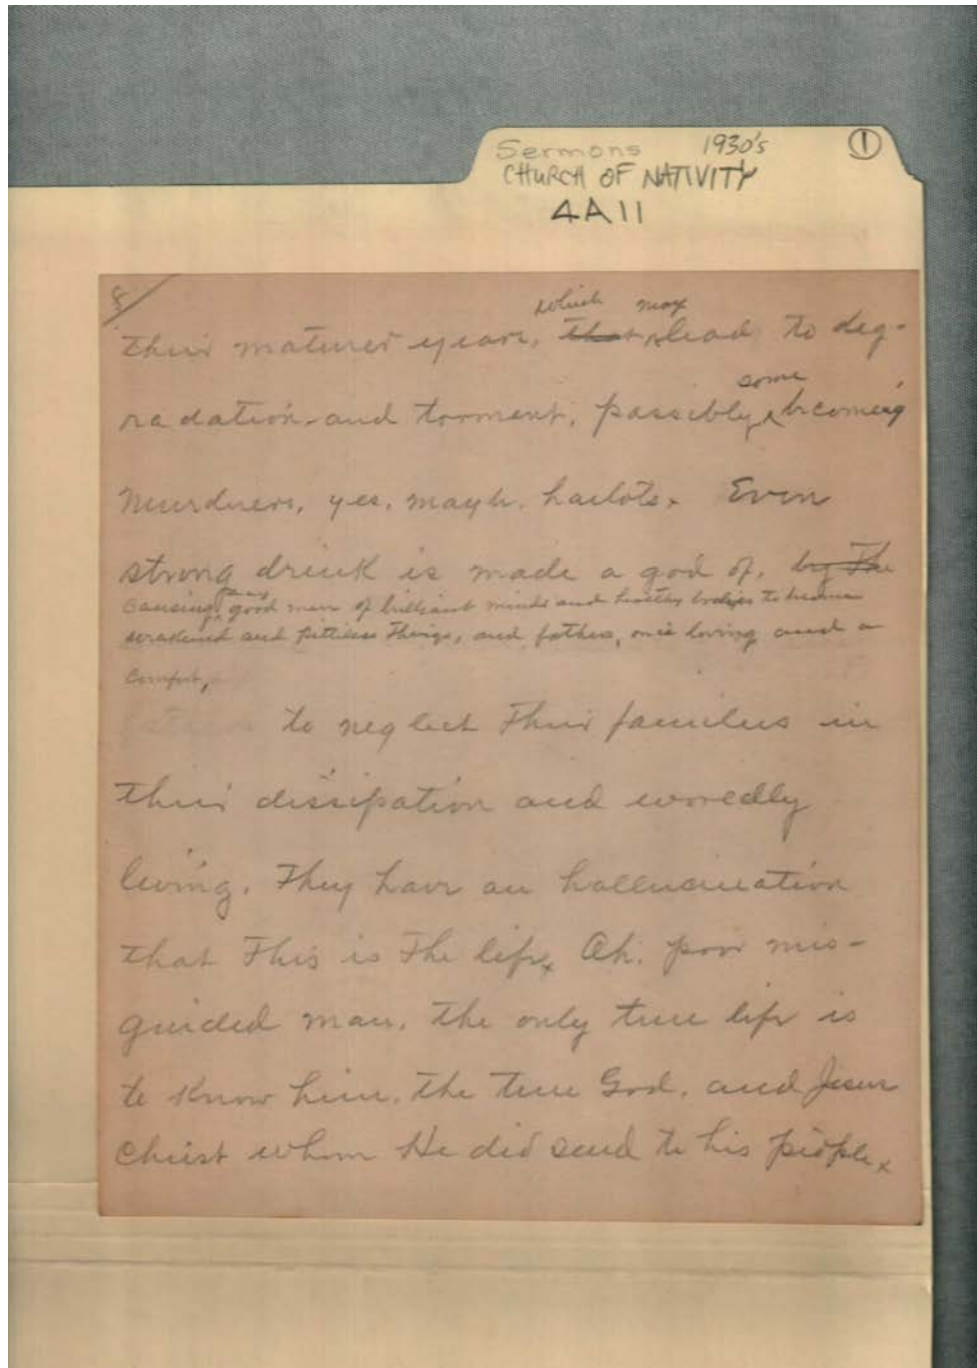 Sermons 1930's ①
CHURCH OF NATIVITY
4A11
8/
which may
their maturer years, that lead to deg-
some
radation and torment, possibly becoming
Murderers, yes, mayb. harlots. Even
strong drink is made a god of, by The
causing good men of brilliant minds and healthy bodies to become
weakened and pittiless Things, and fathers, once loving and a
comfort,
to neglect Their families in
their dissipation and woredly
living. They have an hallucination
that This is The life. Oh, poor mis-
guided man, the only true life is
to Know him, the true God, and Jesus
Christ whom He did send to his people.